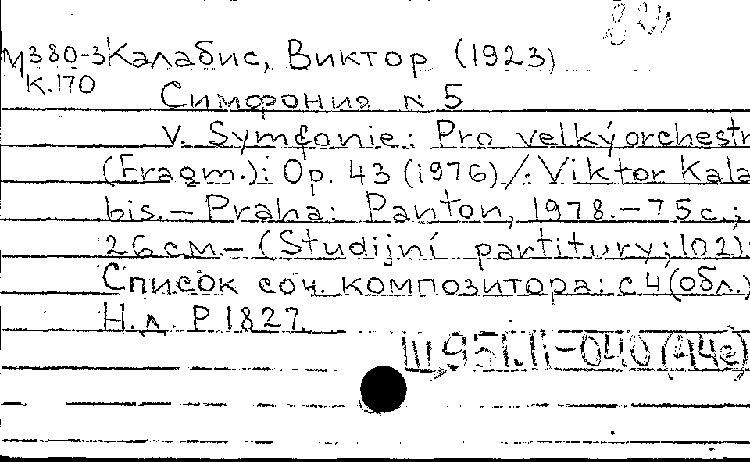 М380-3 Калабис, Виктор (1923)
К.170
Симфония N 5
V. Symfonie: Pro velký orchestr
(Fragm.): Op. 43 (1976) /: Viktor Kala
bis. – Praha: Panton, 1978. – 75 с.;
26 см – (Studijní partitury; 102).
Список соч. композитора: с 4 (обл.)
Н.д. P 1827
Щ951.11-040(44е)